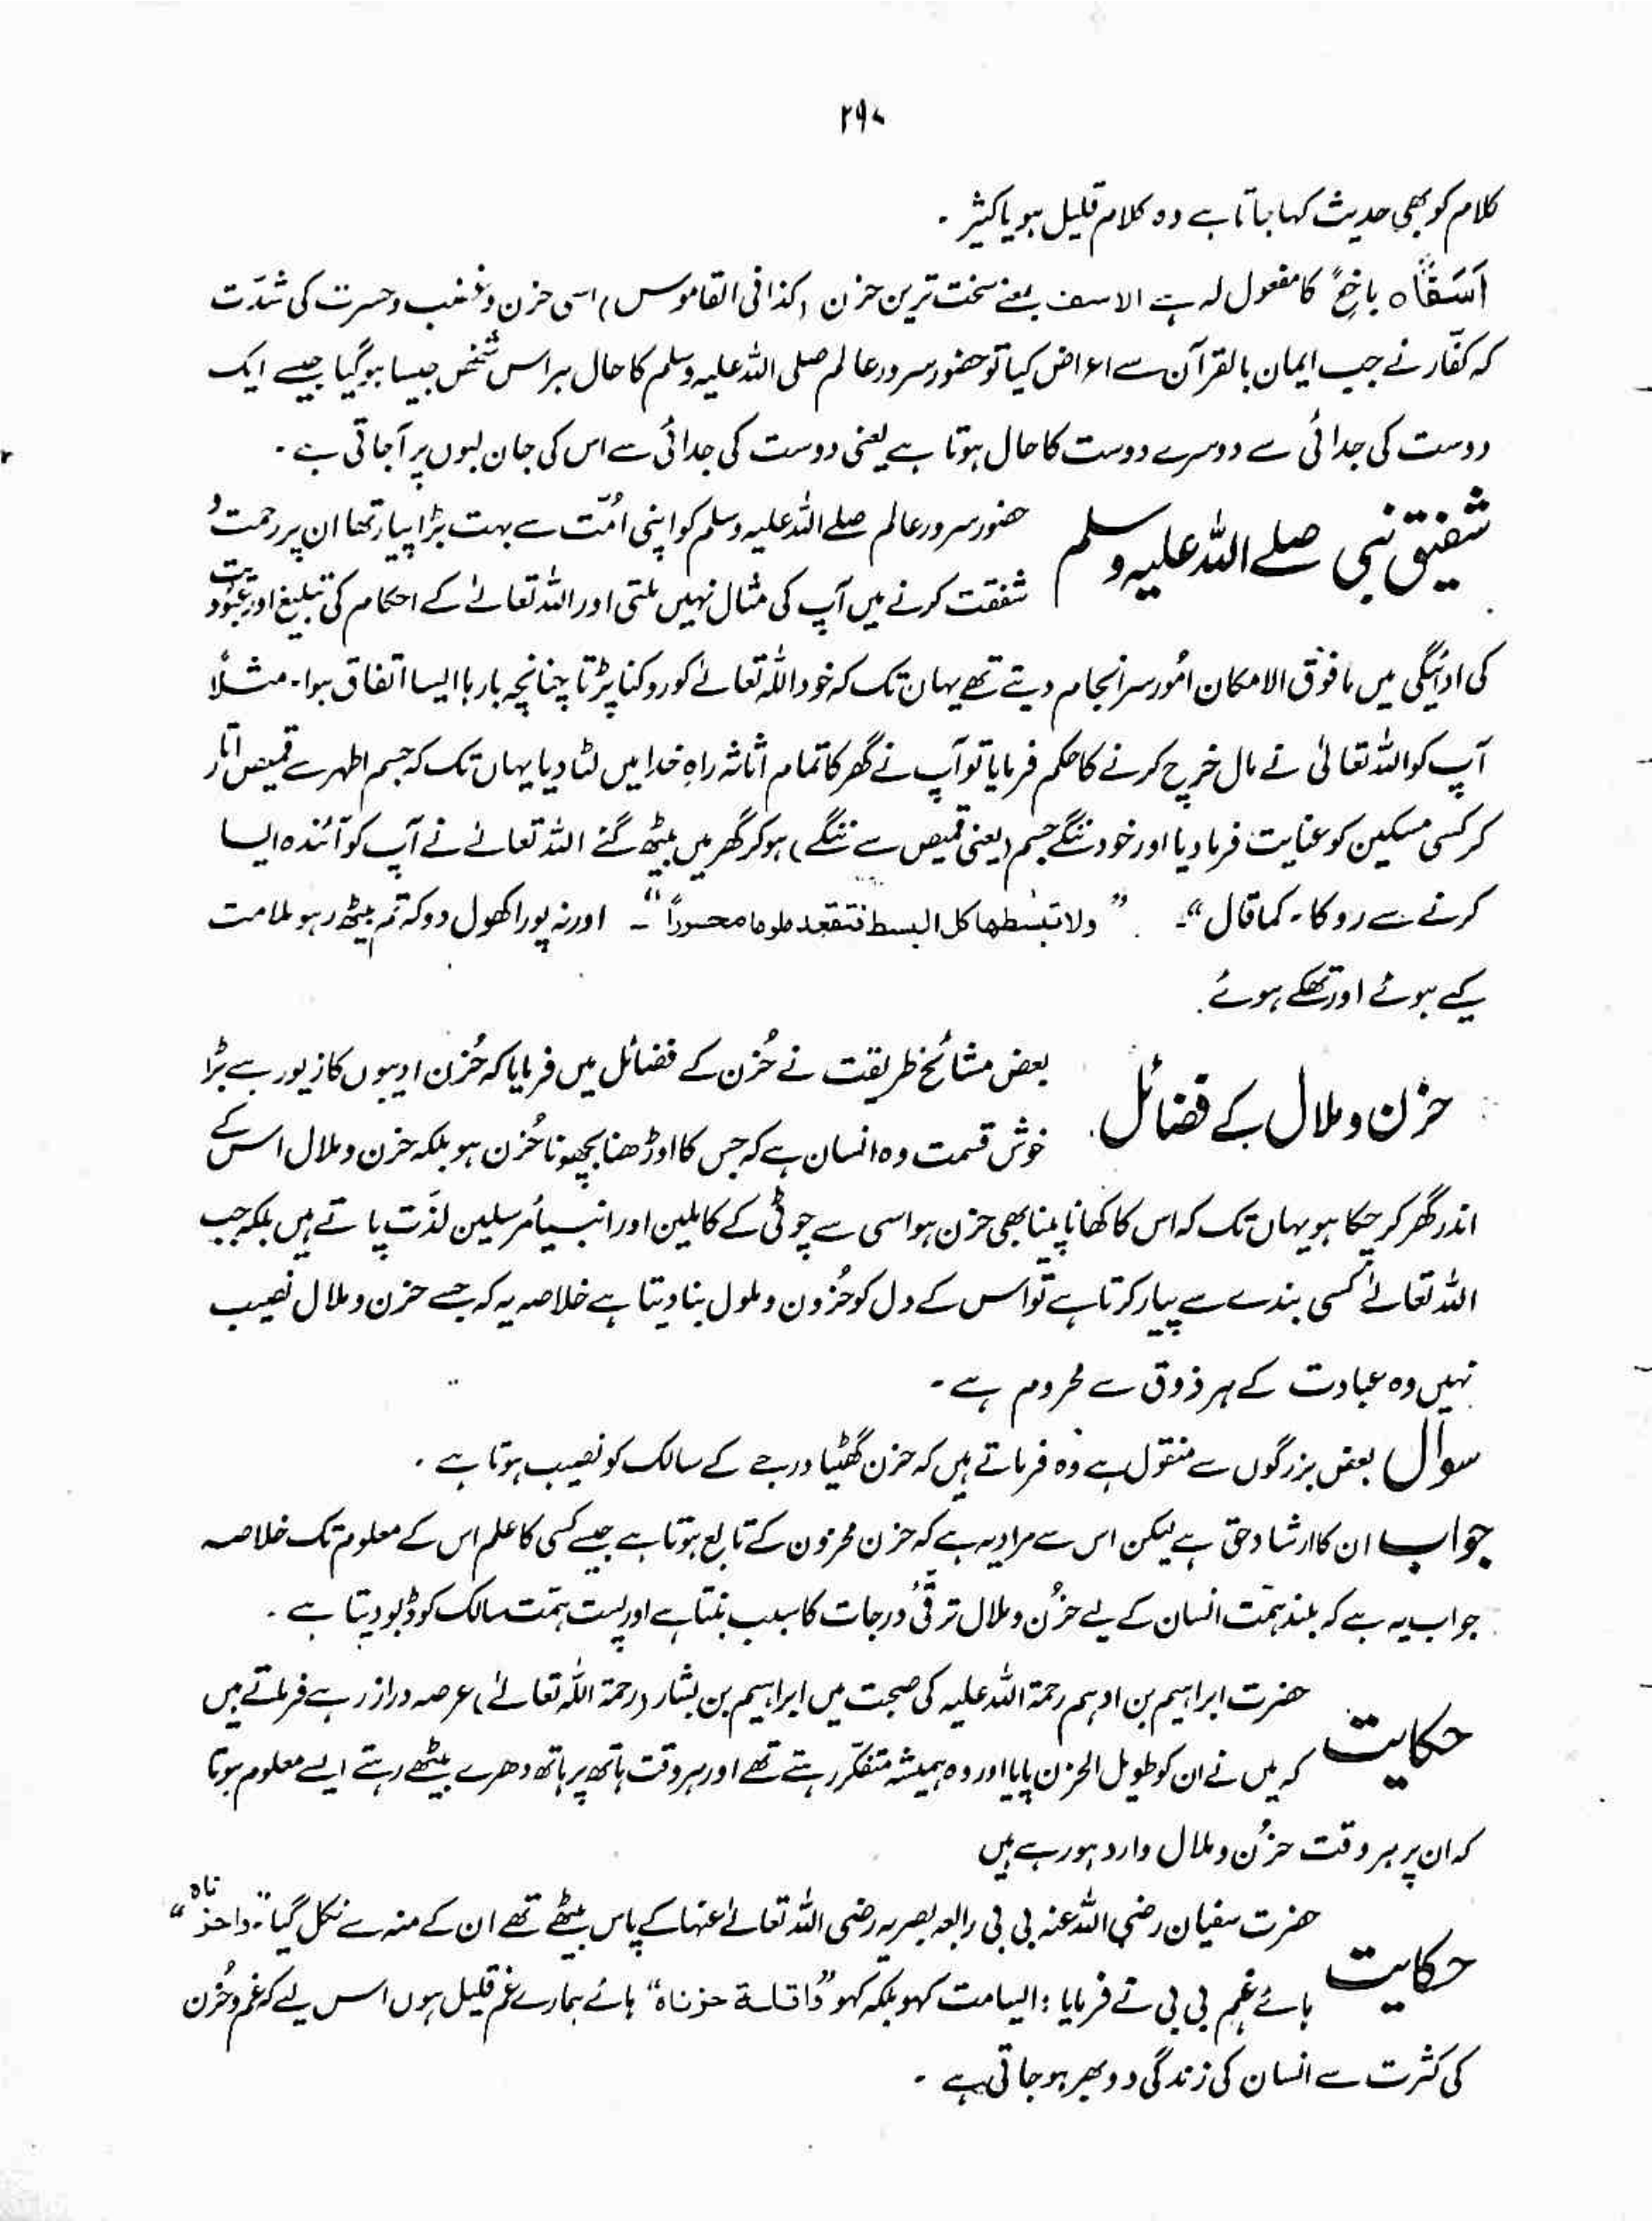 ۲۹۰
کلام کو بھی حدیث کہا جاتا ہے وہ کلام قلیل ہو یا کثیر ۔
اَسَفًا ہ باخِعٌ کا مفعول لہ ہے الاسف بمعنے سخت ترین حزن (کذا فی القاموس) اسی حزن و غضب و حسرت کی شدّت
کہ کفّار نے جب ایمان بالقرآن سے اعراض کیا تو حضور سرور عالم صلی اللہ علیہ وسلم کا حال ہر اس شخص جیسا ہو گیا جیسے ایک
دوست کی جدائی سے دوسرے دوست کا حال ہوتا ہے یعنی دوست کی جدائی سے اس کی جان لبوں پر آجاتی ہے ۔
شفیق نبی صلے اللہ علیہ وسلم حضور سرور عالم صلے اللہ علیہ وسلم کو اپنی اُمّت سے بہت بڑا پیار تھا ان پر رحمت و
شفقت کرنے میں آپ کی مثال نہیں ملتی اور اللہ تعالےٰ کے احکام کی تبلیغ اور عبودیت
کی ادائیگی میں مافوق الامکان اُمور سرانجام دیتے تھے یہاں تک کہ خود اللہ تعالےٰ کو روکنا پڑتا چنانچہ بارہا ایسا اتفاق ہوا۔ مثلًا
آپ کو اللہ تعالیٰ نے مال خرچ کرنے کا حکم فرمایا تو آپ نے گھر کا تمام اثاثہ راہِ خدا میں لٹا دیا یہاں تک کہ جسم اطہر سے قمیص اتار
کر کسی مسکین کو عنایت فرما دیا اور خود ننگے جسم (یعنی قمیص سے ننگے) ہو کر گھر میں بیٹھ گئے اللہ تعالےٰ نے آپ کو آئندہ ایسا
کرنے سے روکا۔ کما قال ؎ " ولا تبسطھا کل البسط فتقعد ملوما محسوراً " ۔ اور نہ پورا کھول دو کہ تم بیٹھ رہو ملامت
کیے ہوئے اور تھکے ہوئے ۔
حزن و ملال کے فضائل بعض مشائخ طریقت نے حُزن کے فضائل میں فرمایا کہ حُزن ادیبوں کا زیور ہے بڑا
خوش قسمت وہ انسان ہے کہ جس کا اوڑھنا بچھونا حُزن ہو بلکہ حزن و ملال اس کے
اندر گھر کر چکا ہو یہاں تک کہ اس کا کھانا پینا بھی حزن ہو اسی سے چوٹی کے کاملین اور انبیاء مرسلین لذّت پاتے ہیں بلکہ جب
اللہ تعالےٰ کسی بندے سے پیار کرتا ہے تو اس کے دل کو حُزون و ملول بنا دیتا ہے خلاصہ یہ کہ جسے حزن و ملال نصیب
نہیں وہ عبادت کے ہر ذوق سے محروم ہے ۔
سوال بعض بزرگوں سے منقول ہے وہ فرماتے ہیں کہ حزن گھٹیا درجے کے سالک کو نصیب ہوتا ہے ۔
جواب ان کا ارشاد حق ہے لیکن اس سے مراد یہ ہے کہ حزن محزون کے تابع ہوتا ہے جیسے کسی کا علم اس کے معلوم تک خلاصہ
جواب یہ ہے کہ بلند ہمّت انسان کے لیے حزُن و ملال ترقّیٔ درجات کا سبب بنتا ہے اور پست ہمّت سالک کو ڈبو دیتا ہے ۔
حکایت حضرت ابراہیم بن ادہم رحمۃ اللہ علیہ کی صحبت میں ابراہیم بن بشار (رحمۃ اللہ تعالےٰ) عرصہ دراز رہے فرماتے ہیں
کہ میں نے ان کو طویل الحزن پایا اور وہ ہمیشہ متفکّر رہتے تھے اور ہر وقت ہاتھ پر ہاتھ دھرے بیٹھے رہتے ایسے معلوم ہوتا
کہ ان پر ہر وقت حزُن و ملال وارد ہو رہے ہیں
حکایت حضرت سفیان رضی اللہ عنہ بی بی رابعہ بصریہ رضی اللہ تعالےٰ عنہا کے پاس بیٹھے تھے ان کے منہ سے نکل گیا " واحزناہ "
ہائے غم بی بی نے فرمایا : ایسا مت کہو بلکہ کہو " واقلة حزناہ " ہائے ہمارے غم قلیل ہوں اس لیے کہ غم و حُزن
کی کثرت سے انسان کی زندگی دوبھر ہو جاتی ہے ۔